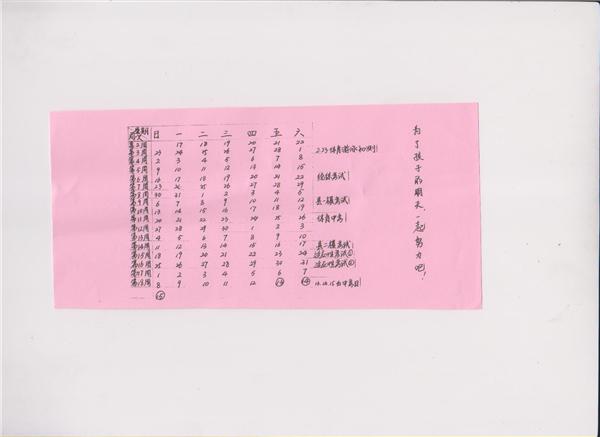 星期 日 一 二 三 四 五 六
周次
第2周 17 18 19 20 21 22
第3周 23 24 25 26 27 28 1 2.23体育游泳初测
第4周 2 3 4 5 6 7 8
第5周 9 10 11 12 13 14 15
第6周 16 17 18 19 20 21 22 考试
第7周 23 24 25 26 27 28 29
第8周 30 31 1 2 3 4 5
第9周 6 7 8 9 10 11 12 县一模考试
第10周 13 14 15 16 17 18 19
第11周 20 21 22 23 24 25 26 体育中考
第12周 27 28 29 30 1 2 3
第13周 4 5 6 7 8 9 10
第14周 11 12 13 14 15 16 17 县二模考试
第15周 18 19 20 21 22 23 24 适应性考试①
第16周 25 26 27 28 29 30 31 适应性考试②
第17周 1 2 3 4 5 6 7
第18周 8 9 10 11 12 ⑬ ⑭ 13.14.15为中考日
⑮
为了孩子的明天,一起努力吧!